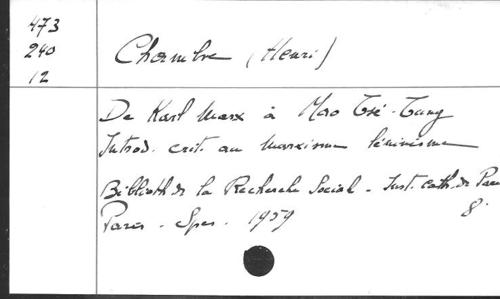 473
240
12
Chambre (Henri)
De Karl Marx à Mao Tsé-Tung
Introd. crit. au Marxisme léninisme
Biblioth. de la Recherche Social - Inst. cath. de Paris
8°
Paris - Spes - 1959